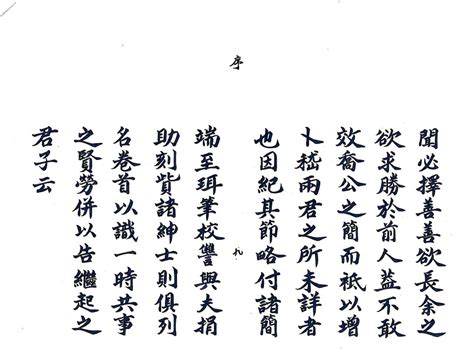 聞必擇善善欲長余之
欲求勝於前人葢不敢
效喬公之簡而祗以增
卜嵇兩君之所未詳者
也因紀其節略付諸簡
序
九
端至珥筆校讐與夫捐
助刻貲諸紳士則俱列
名卷首以識一時共事
之賢勞併以告繼起之
君子云